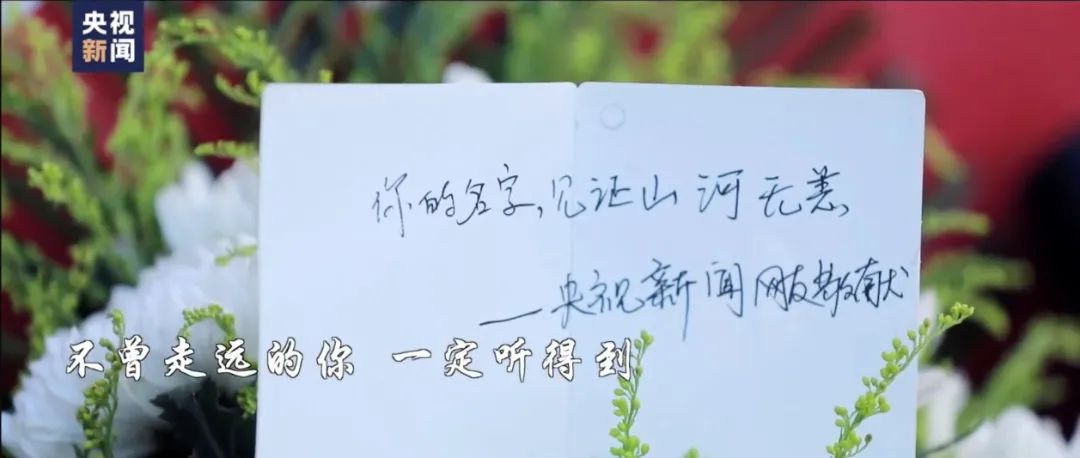 央视
新闻
你的名字,见证山河无恙
——央视新闻网友敬献
不曾走远的你 一定听得到